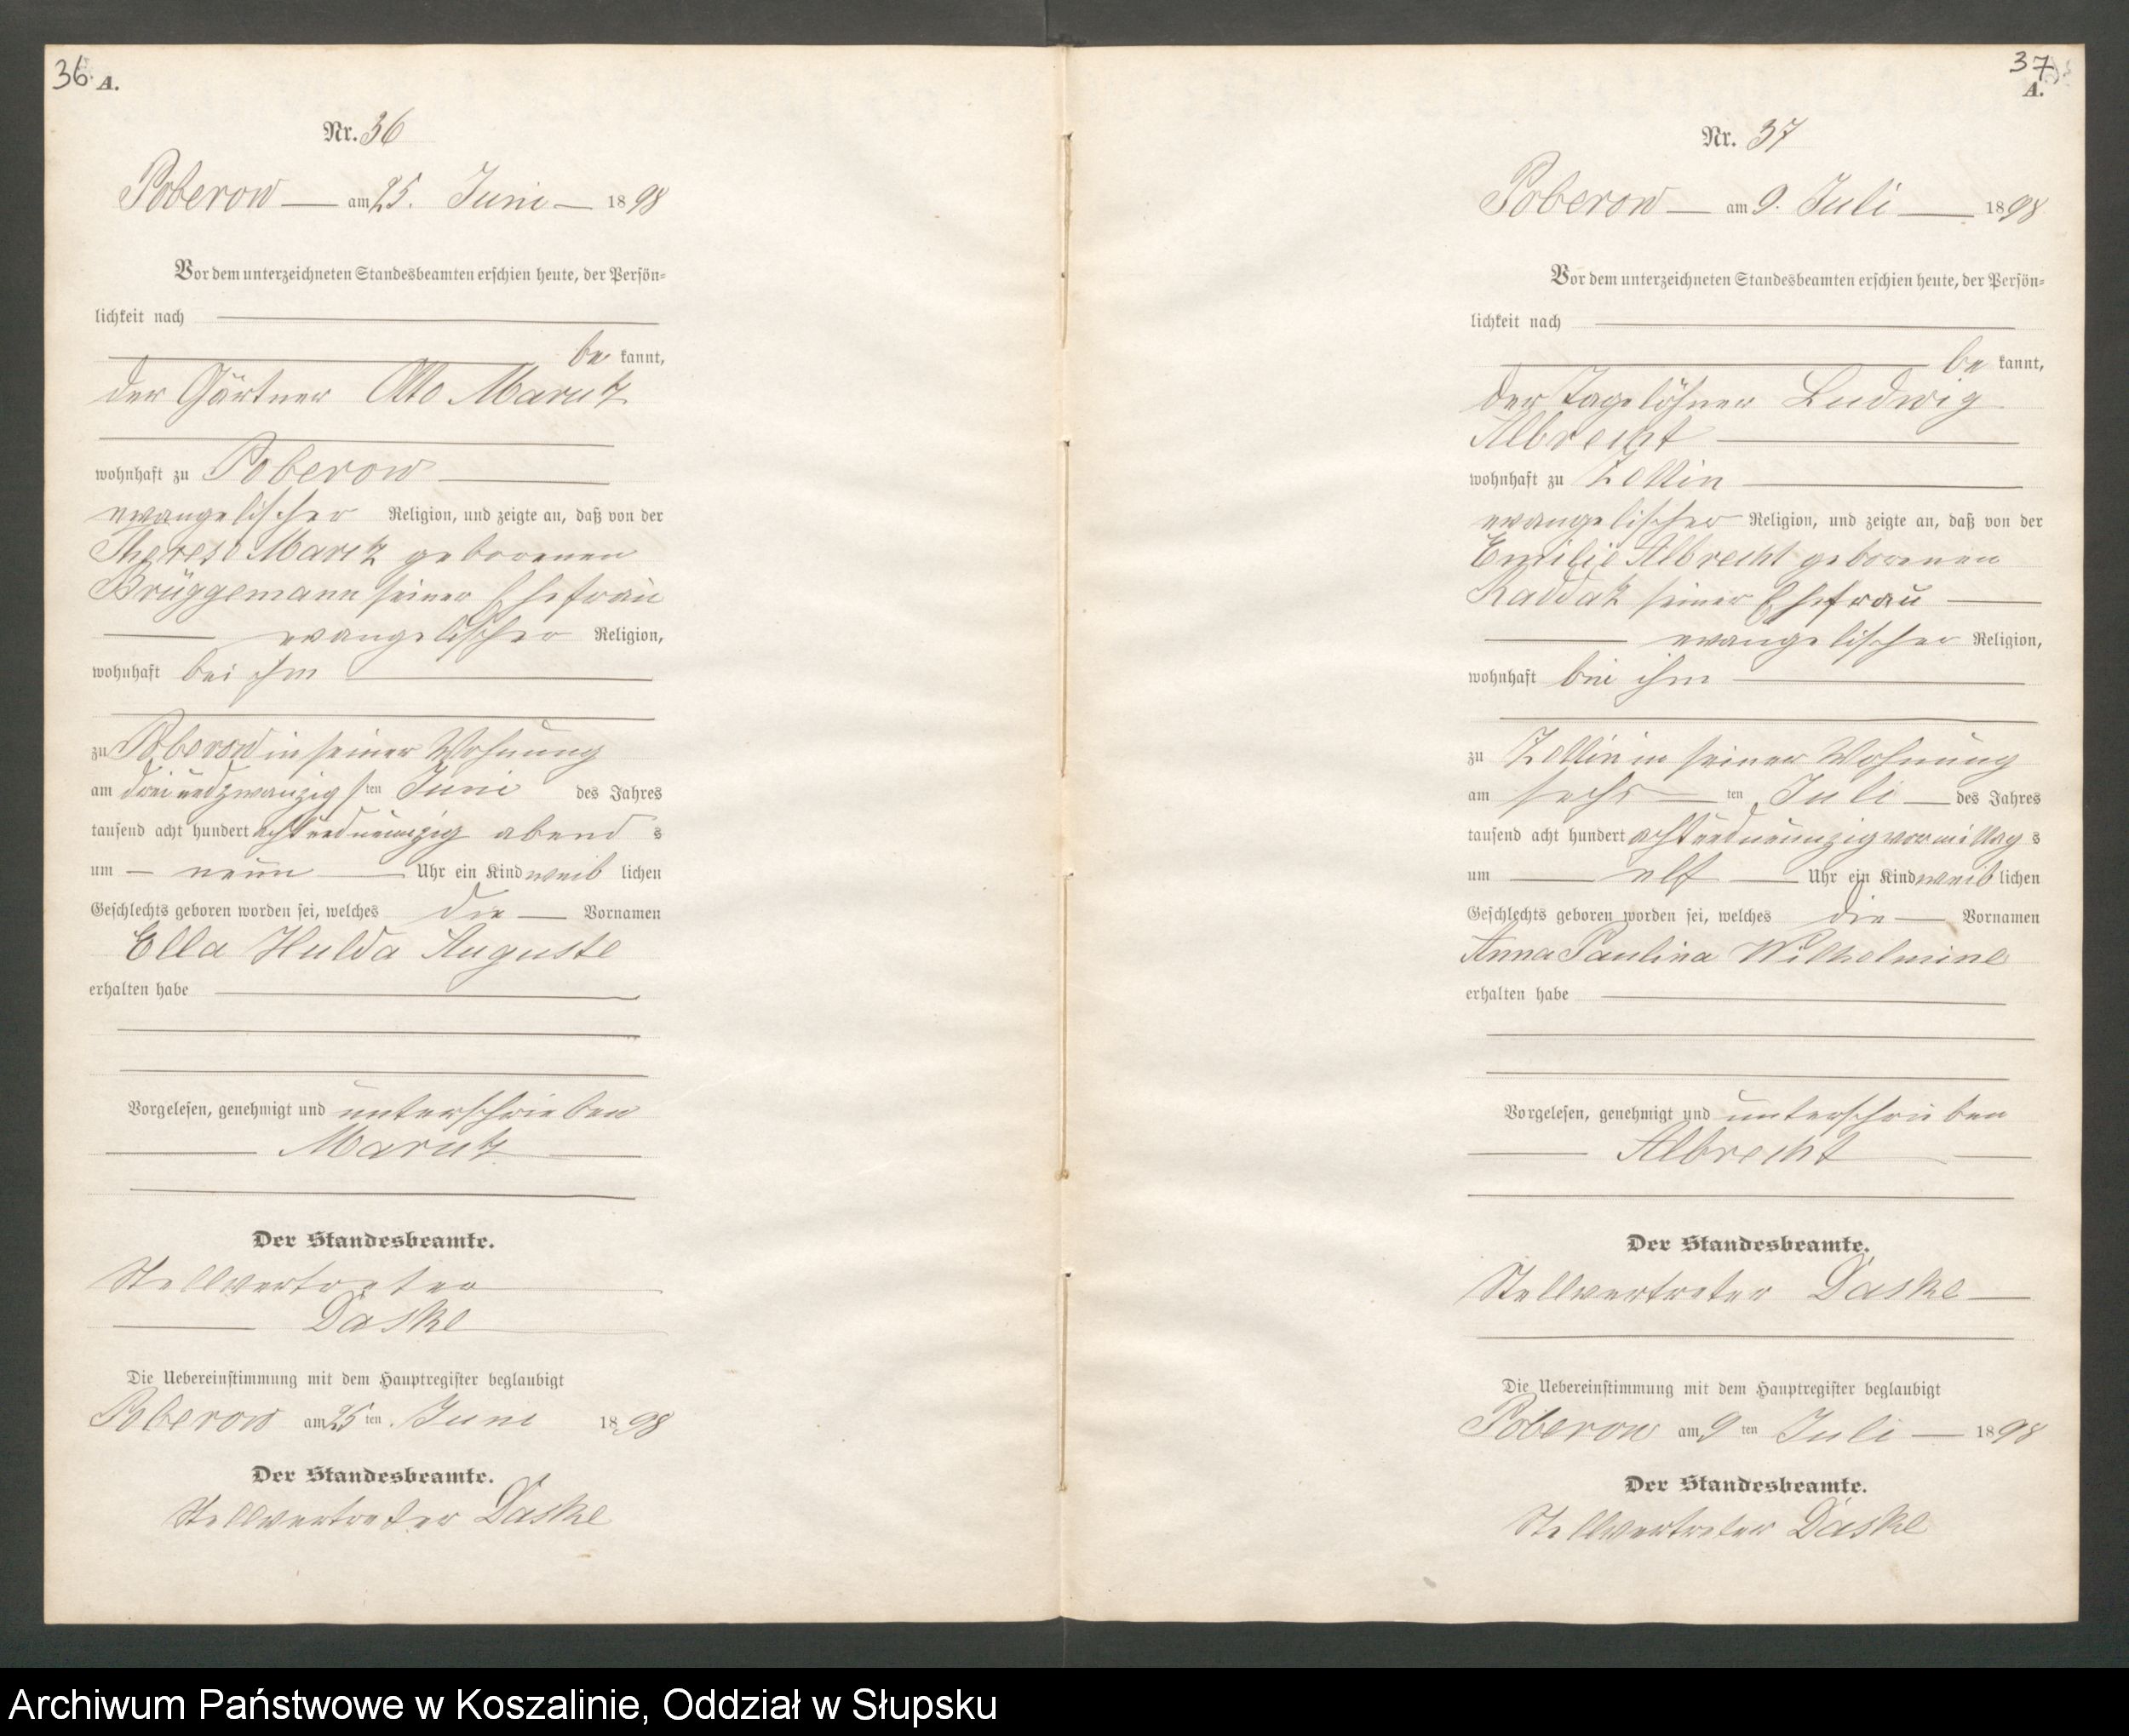 36. A.
Nr. 36
Poberow am 25. Juni 1898
Vor dem unterzeichneten Standesbeamten erschien heute, der Persön-
lichkeit nach
be kannt,
der Gärtner Otto Marutz
wohnhaft zu Poberow
evangelischer Religion, und zeigte an, daß von der
Therese Marutz geborenen
Brüggemann seiner Ehefrau
evangelischer Religion,
wohnhaft bei ihm
zu Poberow in seiner Wohnung
am dreiundzwanzigsten Juni des Jahres
tausend acht hundert achtundneunzig abend s
um neun Uhr ein Kind weib lichen
Geschlechts geboren worden sei, welches die Vornamen
Ella Hulda Auguste
erhalten habe
Vorgelesen, genehmigt und unterschrieben
Marutz
Der Standesbeamte.
Stellvertreter
Daske
Die Uebereinstimmung mit dem Hauptregister beglaubigt
Poberow am 25 ten Juni 1898
Der Standesbeamte.
Stellvertreter Daske
37
A.
Nr. 37
Poberow am 9. Juli 1898
Vor dem unterzeichneten Standesbeamten erschien heute, der Persön-
lichkeit nach
be kannt,
der Tagelöhner Ludwig
Albrecht
wohnhaft zu Zettin
evangelischer Religion, und zeigte an, daß von der
Emilie Albrecht geborenen
Raddatz seiner Ehefrau
evangelischer Religion,
wohnhaft bei ihm
zu Zettin in seiner Wohnung
am sechs ten Juli des Jahres
tausend acht hundert achtundneunzig vormittag s
um elf Uhr ein Kind weib lichen
Geschlechts geboren worden sei, welches die Vornamen
Anna Paulina Wilhelmine
erhalten habe
Vorgelesen, genehmigt und unterschrieben
Albrecht
Der Standesbeamte.
Stellvertreter Daske
Die Uebereinstimmung mit dem Hauptregister beglaubigt
Poberow am 9 ten Juli 1898
Der Standesbeamte.
Stellvertreter Daske
Archiwum Państwowe w Koszalinie, Oddział w Słupsku